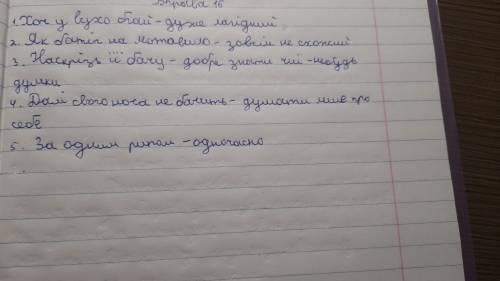 Вправа 16
1. Хоч у вухо бгай - дуже лагідний
2. Як батіг на мотовило - зовсім не схожий
3. Наскрізь її бачу - добре знати чиї-небудь
думки
4. Далі свого носа не бачить - думати лише про
себе
5. За одним рипом - одночасно